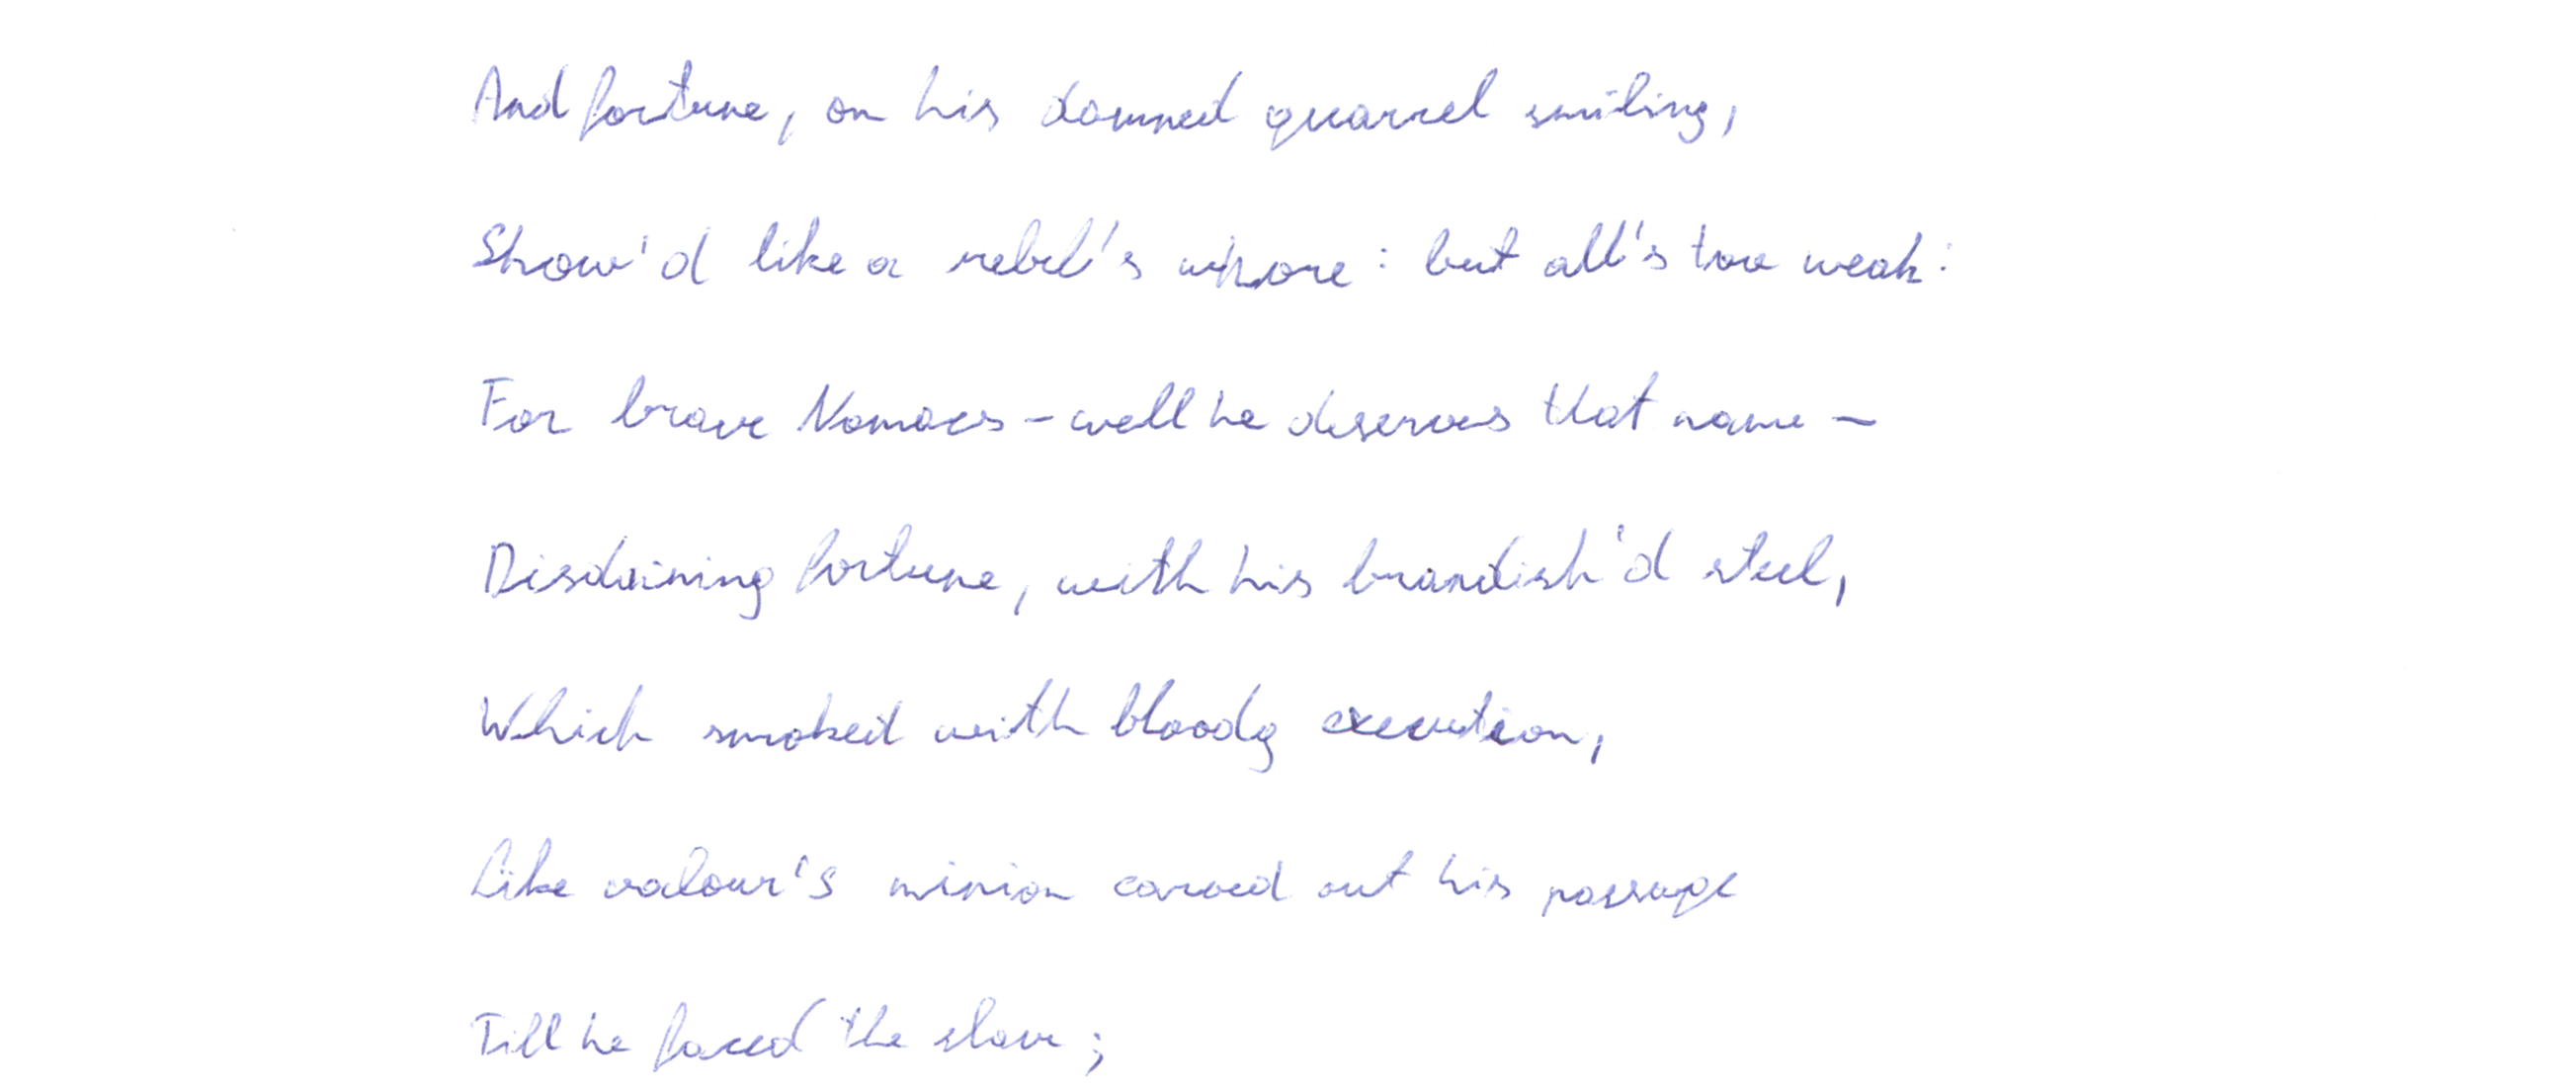 And fortune, on his damned quarrel smiling,
Show'd like a rebel's whore : but all's too weak :
For brave Nomacs – well he deserves that name –
Disdaining fortune, with his brandish'd steel,
Which smoked with bloody execution,
Like valour's minion carved out his passage
Till he faced the slave ;